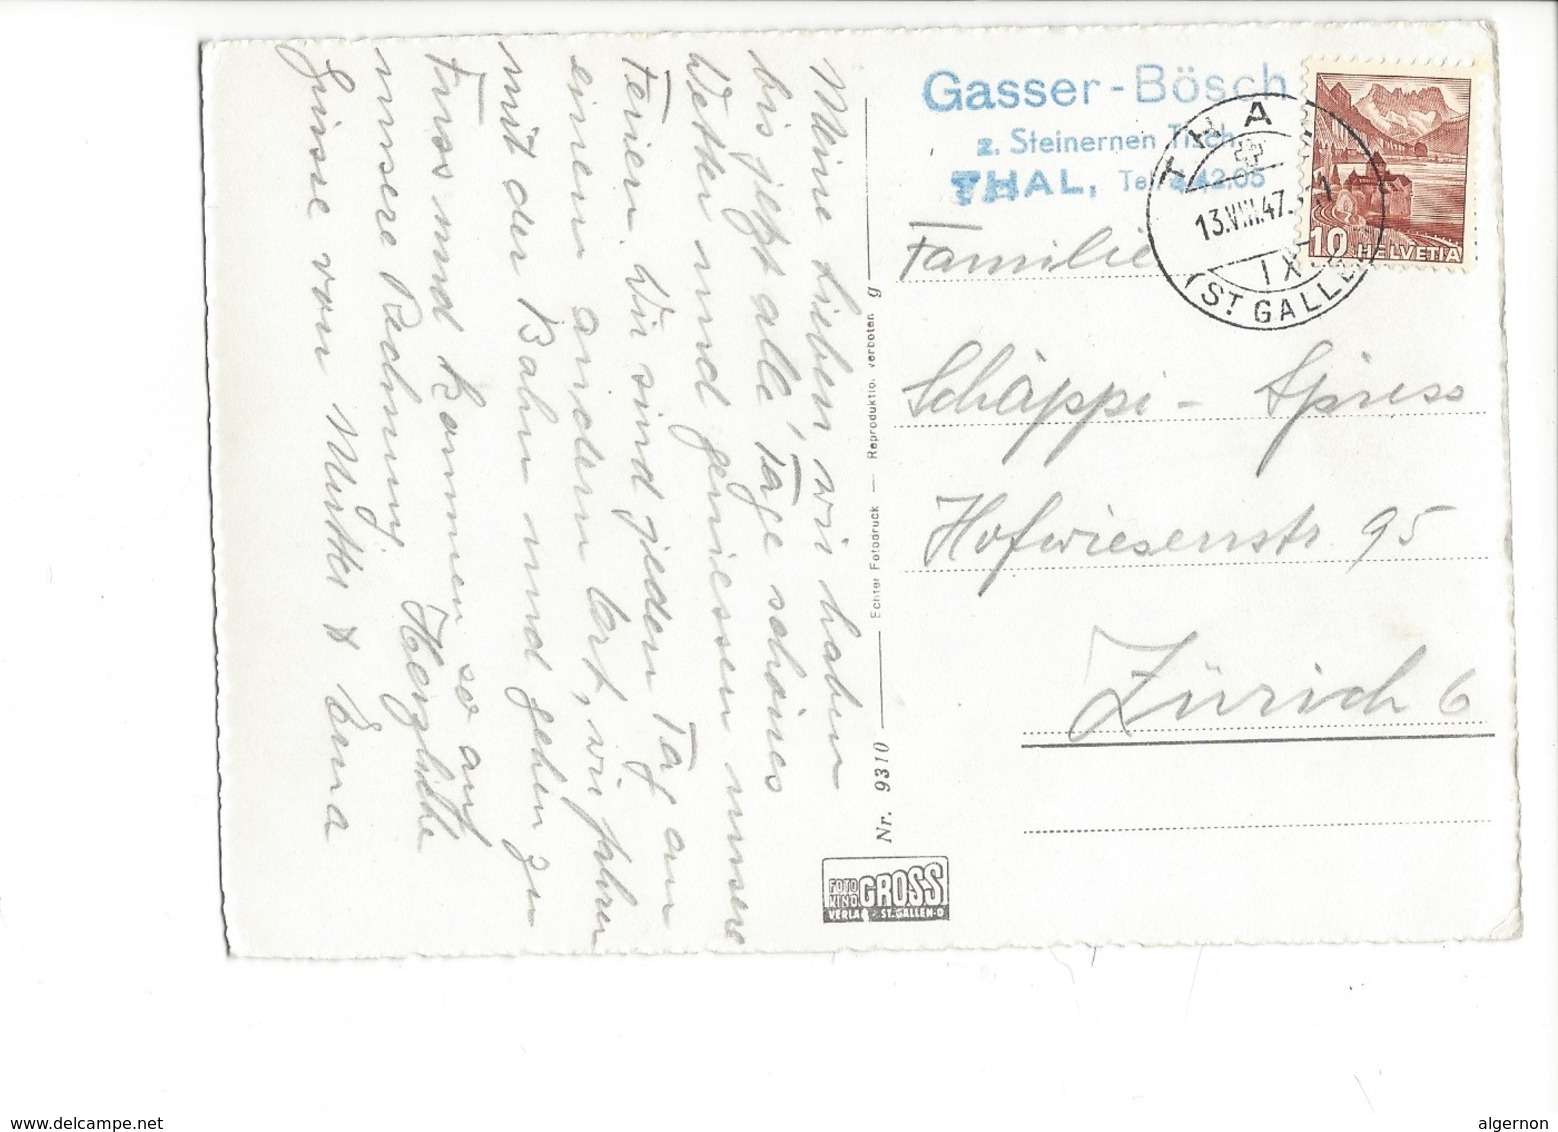 Meine Lieben, wir haben
bis jetzt alle Tage schönes
Wetter und geniessen unsere
Ferien. Wir sind jeden Tag an
einem andern Ort, wir fahren
mit der Bahn und gehen zu
Fuss und kommen so auf
unsere Rechnung Herzliche
Grüsse von Mutter & Erna
Echter Fotodruck — Reproduktion verboten g
Nr. 9310
FOTO KINO GROSS
VERLAG ST. GALLEN-O
Gasser-Bösch
z. Steinernen Tisch
THAL, Tel. 4.42.05
THAL
13.VIII.47.
IX
(ST. GALLEN)
10 HELVETIA
Familie
Schäppi - Spiess
Hofwiesenstr 95
Zürich 6
www.delcampe.net
algernon